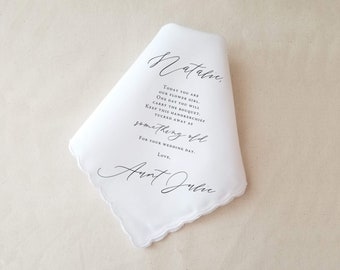 Natalie,
TODAY YOU ARE
OUR FLOWER GIRL.
ONE DAY YOU WILL
CARRY THE BOUQUET.
KEEP THIS HANDKERCHIEF
TUCKED AWAY AS
something old
FOR YOUR WEDDING DAY.
LOVE,
Aunt Julie